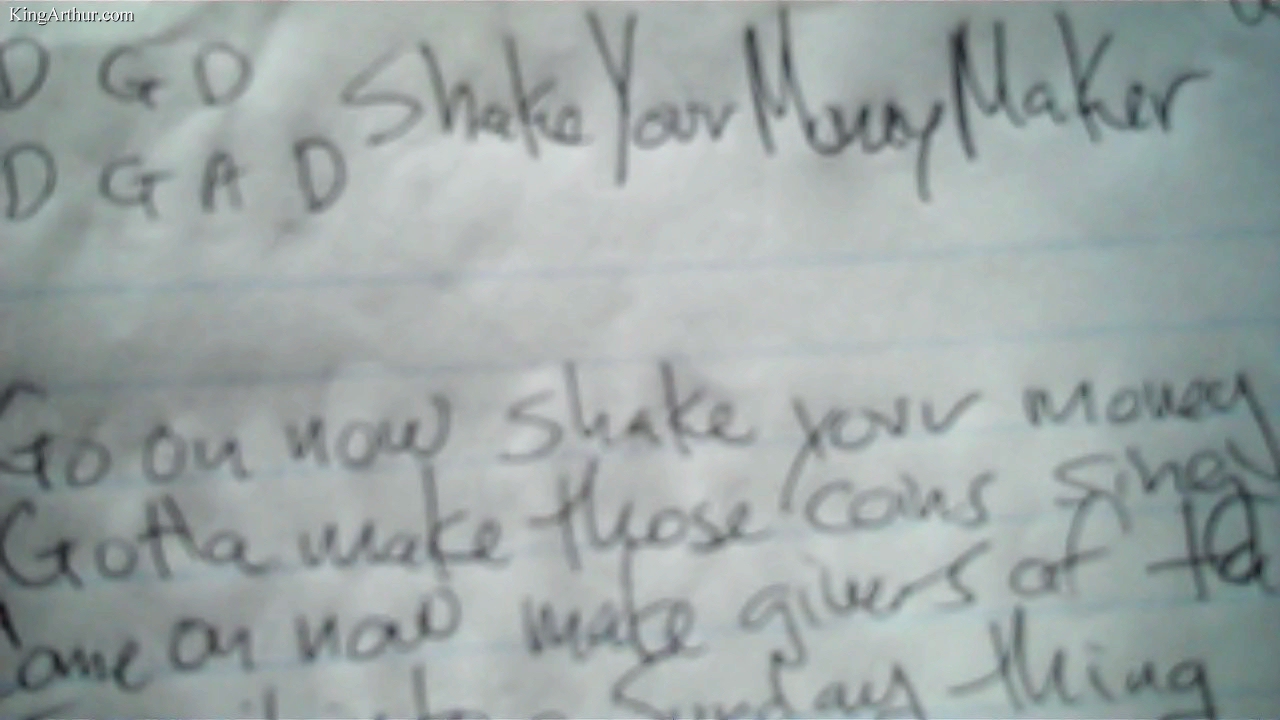 KingArthur.com
D G D Shake Your Money Maker
D G A D
Go on now shake your money
Gotta make those coins sing
Come on now make givers of ta
Sunday thing